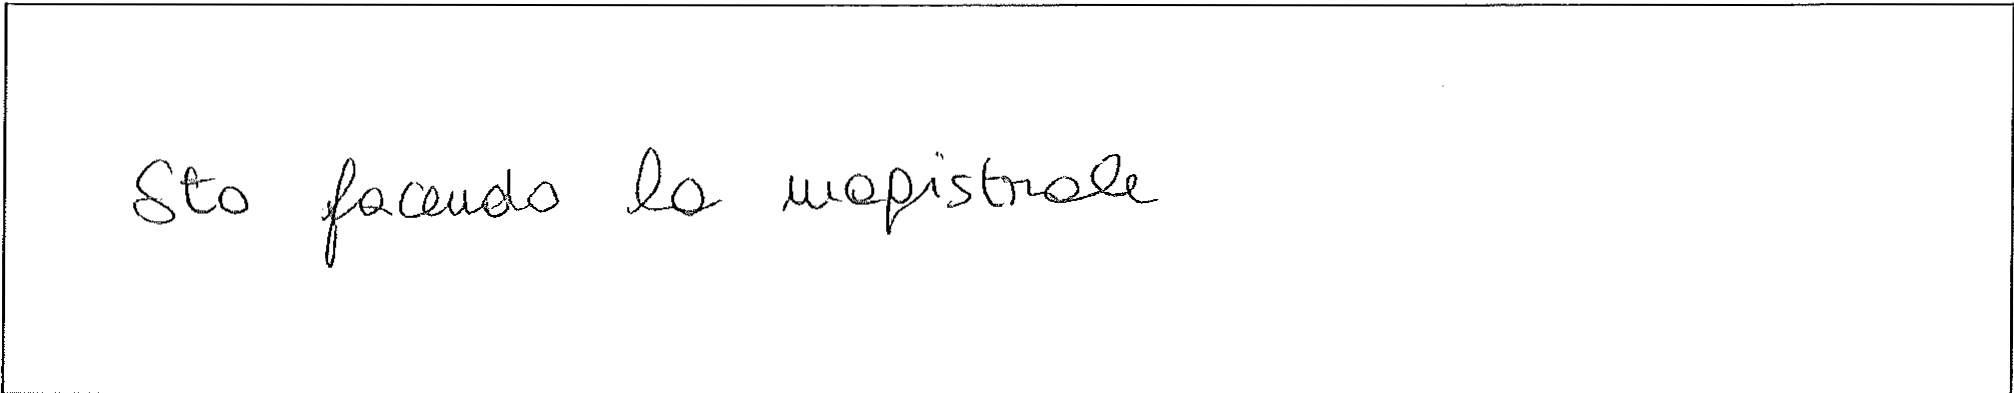 Sto facendo la magistrale